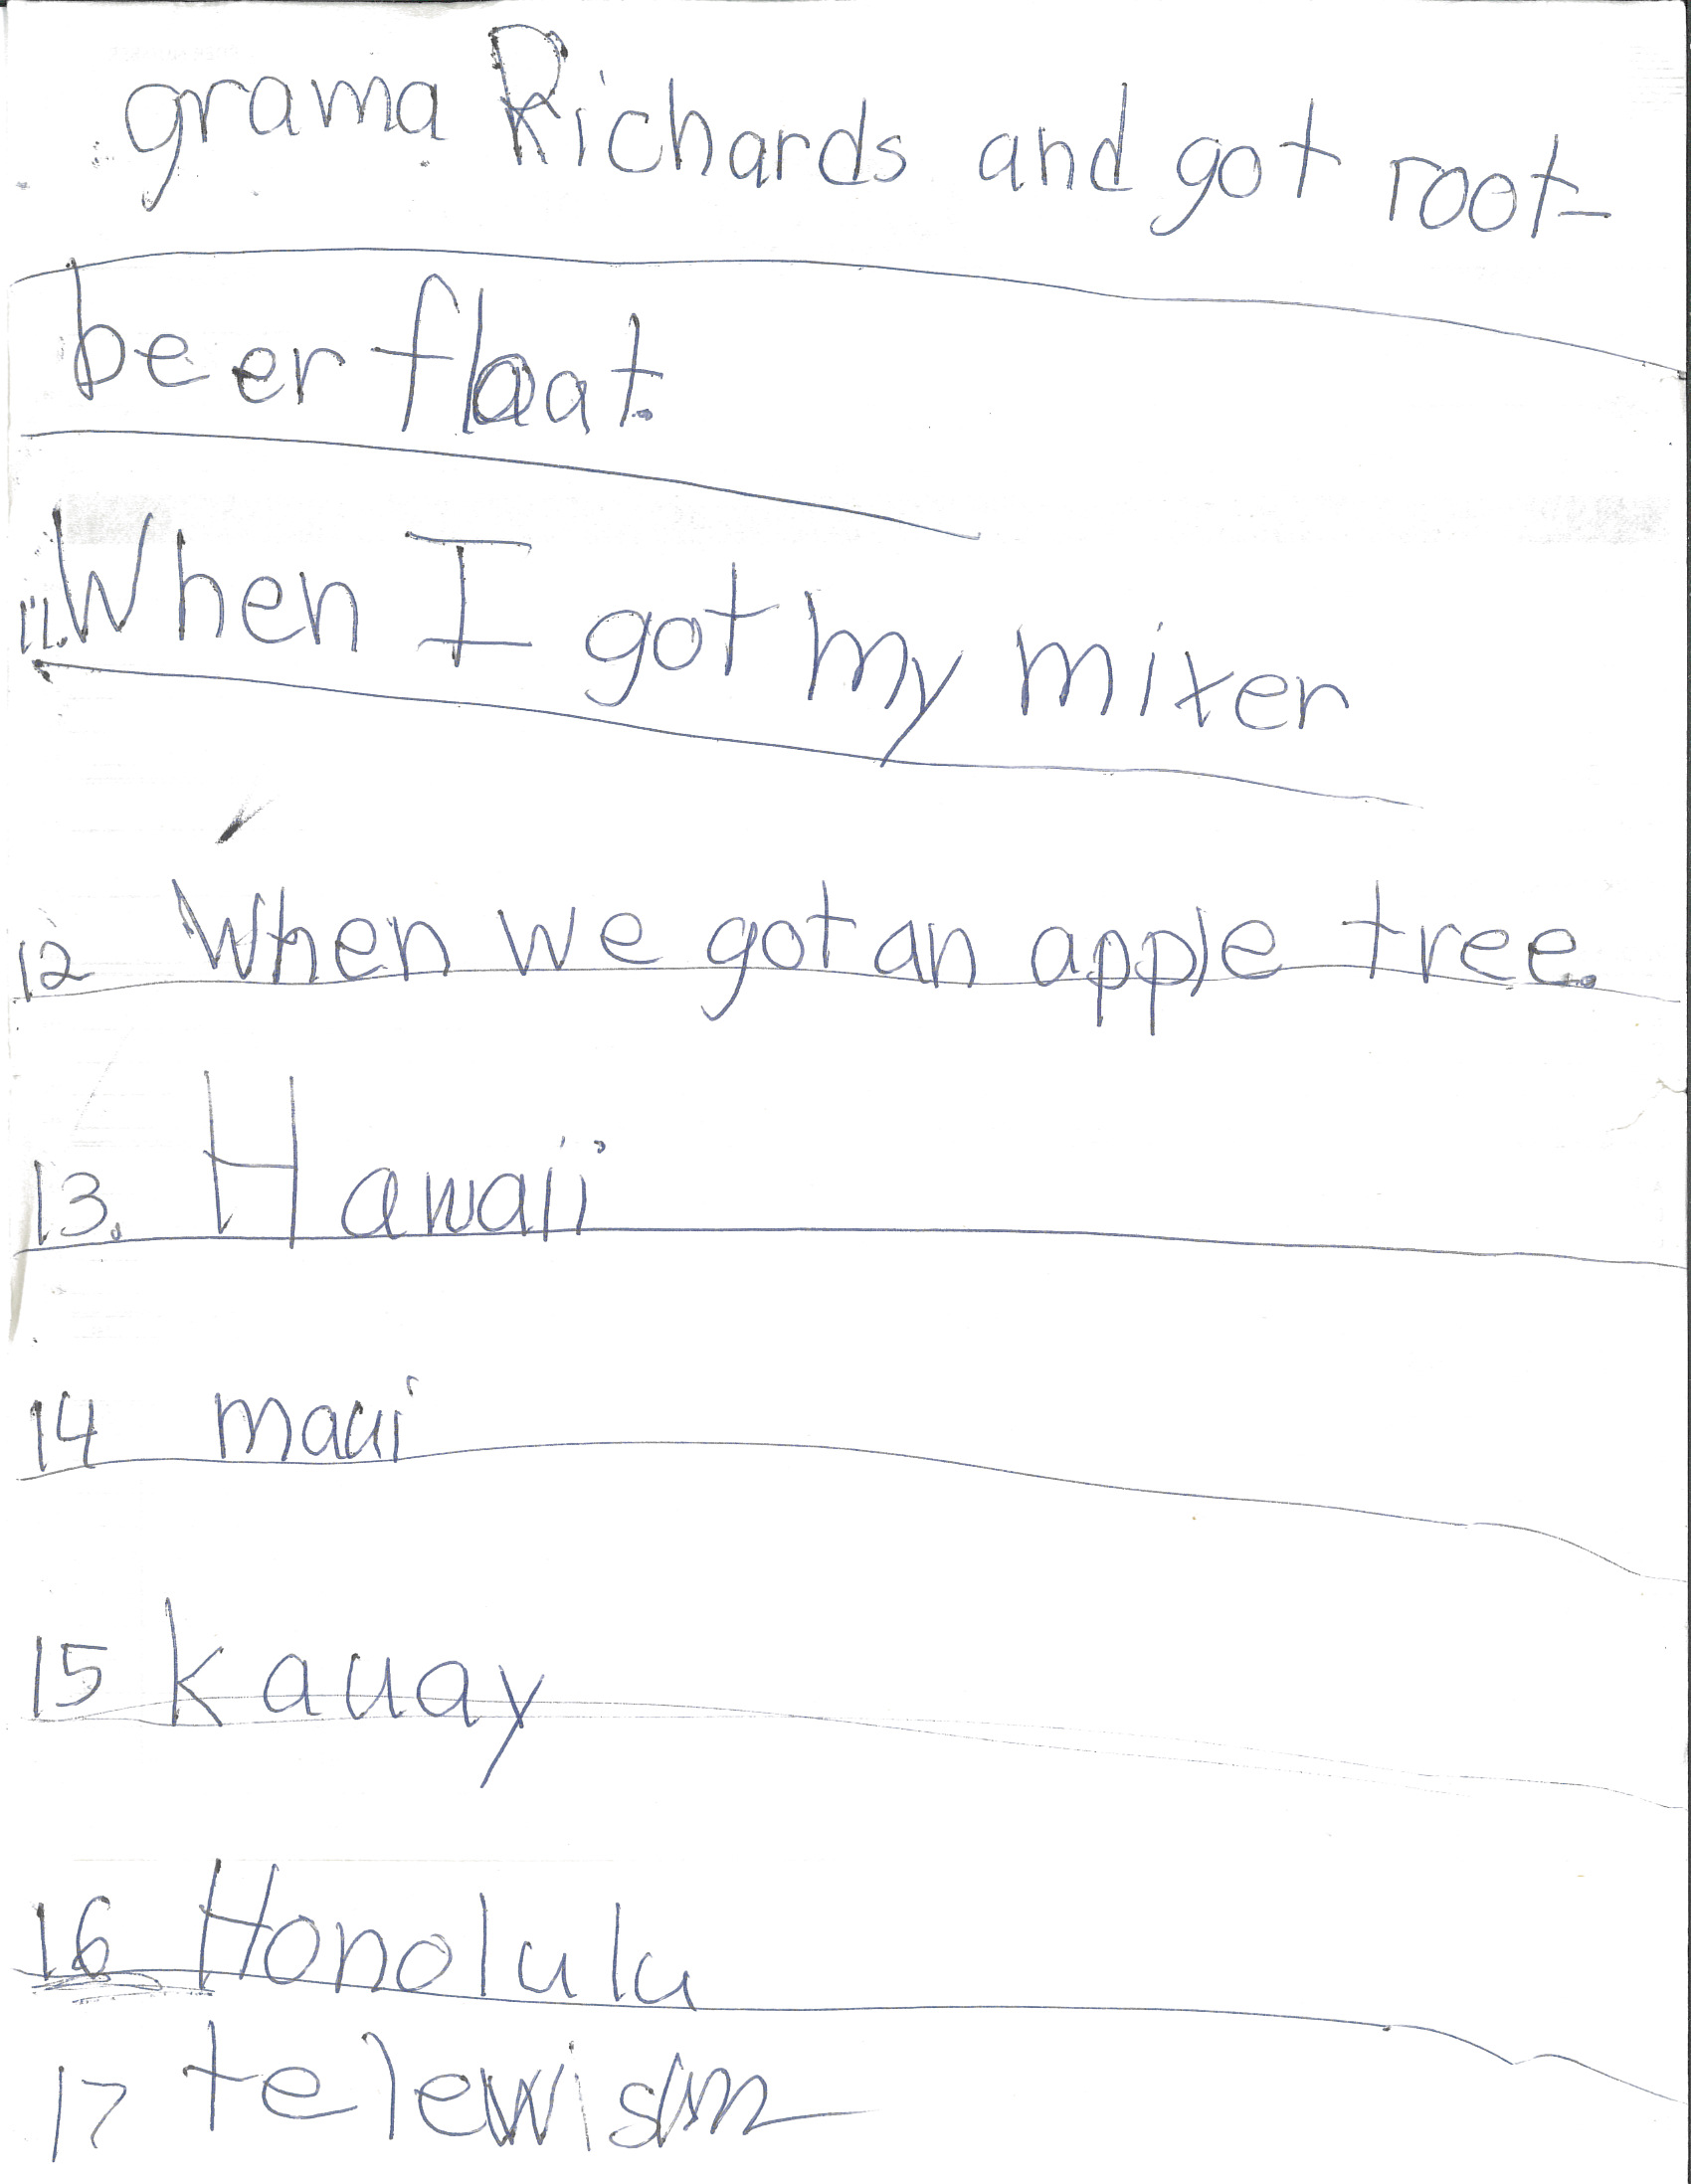 grama Richards and got root-
beer float.
11. When I got my mixer
12 When we got an apple tree.
13. Hawaii
14 maui
15 kauay
16 Honolulu
17